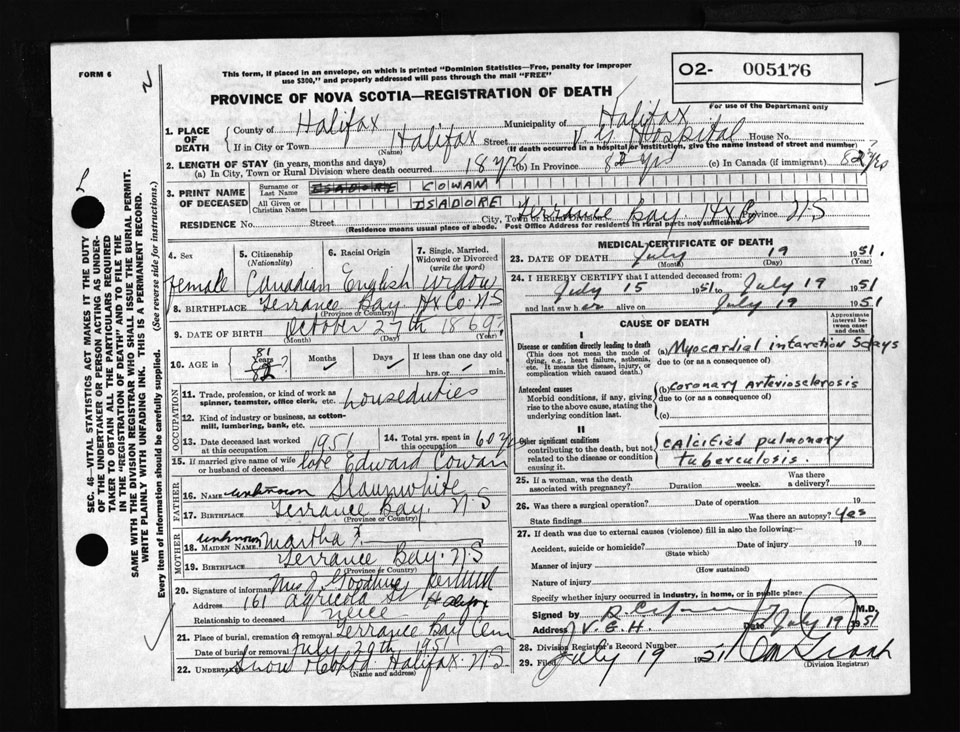 FORM 6
2
This form, if placed in an envelope, on which is printed "Dominion Statistics—Free, penalty for improper
use $300," and properly addressed will pass through the mail "FREE"
02- 005176
For use of the Department only
PROVINCE OF NOVA SCOTIA—REGISTRATION OF DEATH
1. PLACE OF DEATH
County of Halifax Municipality of Halifax
If in City or Town Halifax Street V. G. Hospital House No.
(Name) (If death occurred in a hospital or institution, give the name instead of street and number)
2. LENGTH OF STAY (in years, months and days)
(a) In City, Town or Rural Division where death occurred 18 yrs (b) In Province 82 yrs (c) In Canada (if immigrant) 82 yrs
3. PRINT NAME OF DECEASED
Surname or Last Name ISADORE COWAN
All Given or Christian Names ISADORE
RESIDENCE No. Street City, Town or Rural Terrance Bay Hx Co Province N S
(Residence means usual place of abode. Post Office Address for residents in rural parts not sufficient.)
4. Sex 5. Citizenship (Nationality) 6. Racial Origin 7. Single, Married, Widowed or Divorced (write the word)
Female Canadian English Widow
8. BIRTHPLACE Terrance Bay Hx Co. N S
(Province or Country)
9. DATE OF BIRTH October 27th 1869
(Month) (Day) (Year)
10. AGE 81 Years 82 Months Days If less than one day old
hrs. or min.
OCCUPATION
11. Trade, profession, or kind of work as
spinner, teamster, office clerk, etc. houseduties
12. Kind of industry or business, as cotton-
mill, lumbering, bank, etc.
13. Date deceased last worked at this occupation 1951 14. Total yrs. spent in this occupation 60 yrs
15. If married give name of wife or husband of deceased late Edward Cowan
FATHER
16. NAME unknown Slaunwhite
17. BIRTHPLACE Terrance Bay. N S
(Province or Country)
MOTHER
18. MAIDEN NAME unknown Martha ?
19. BIRTHPLACE Terrance Bay. N.S
(Province or Country)
20. Signature of informant Mrs J
Address 161 Agricola St Halifax
Relationship to deceased neice
21. Place of burial, cremation or removal Terrance Bay Cem
Date of burial or removal July 20th 1951
22. Undertaker Snow Halifax. N S
(Name and address)
MEDICAL CERTIFICATE OF DEATH
23. DATE OF DEATH July 19 1951
(Month) (Day) (Year)
24. I HEREBY CERTIFY that I attended deceased from:
July 15 1951 to July 19 1951
and last saw her alive on July 19 1951
CAUSE OF DEATH
Approximate interval between onset and death
I
Disease or condition directly leading to death
(This does not mean the mode of dying, e.g., heart failure, asthenia, etc. It means the disease, injury, or complication which caused death.)
(a) Myocardial infarction 5 days
due to (or as a consequence of)
Antecedent causes
Morbid conditions, if any, giving rise to the above cause, stating the underlying condition last.
(b) coronary arteriosclerosis
due to (or as a consequence of)
(c)
II
Other significant conditions
contributing to the death, but not related to the disease or condition causing it.
calcified pulmonary
tuberculosis.
25. If a woman, was the death associated with pregnancy? Duration weeks. Was there a delivery?
26. Was there a surgical operation? Date of operation 19
State findings Was there an autopsy? Yes
27. If death was due to external causes (violence) fill in also the following:—
Accident, suicide or homicide? Date of injury 19
(State which)
Manner of injury
(How sustained)
Nature of injury
Specify whether injury occurred in industry, in home, or in public place
Signed by M.D.
Address V. G. H. Date July 19 1951
28. Division Registrar's Record Number
29. Filed July 19 1951
(Division Registrar)
SEC. 46—VITAL STATISTICS ACT MAKES IT THE DUTY
OF THE UNDERTAKER OR PERSON ACTING AS UNDER-
TAKER TO OBTAIN ALL THE PARTICULARS REQUIRED
IN THE "REGISTRATION OF DEATH" AND TO FILE THE
SAME WITH THE DIVISION REGISTRAR WHO SHALL ISSUE THE BURIAL PERMIT.
WRITE PLAINLY WITH UNFADING INK. THIS IS A PERMANENT RECORD.
Every item of information should be carefully supplied. (See reverse side for instructions.)